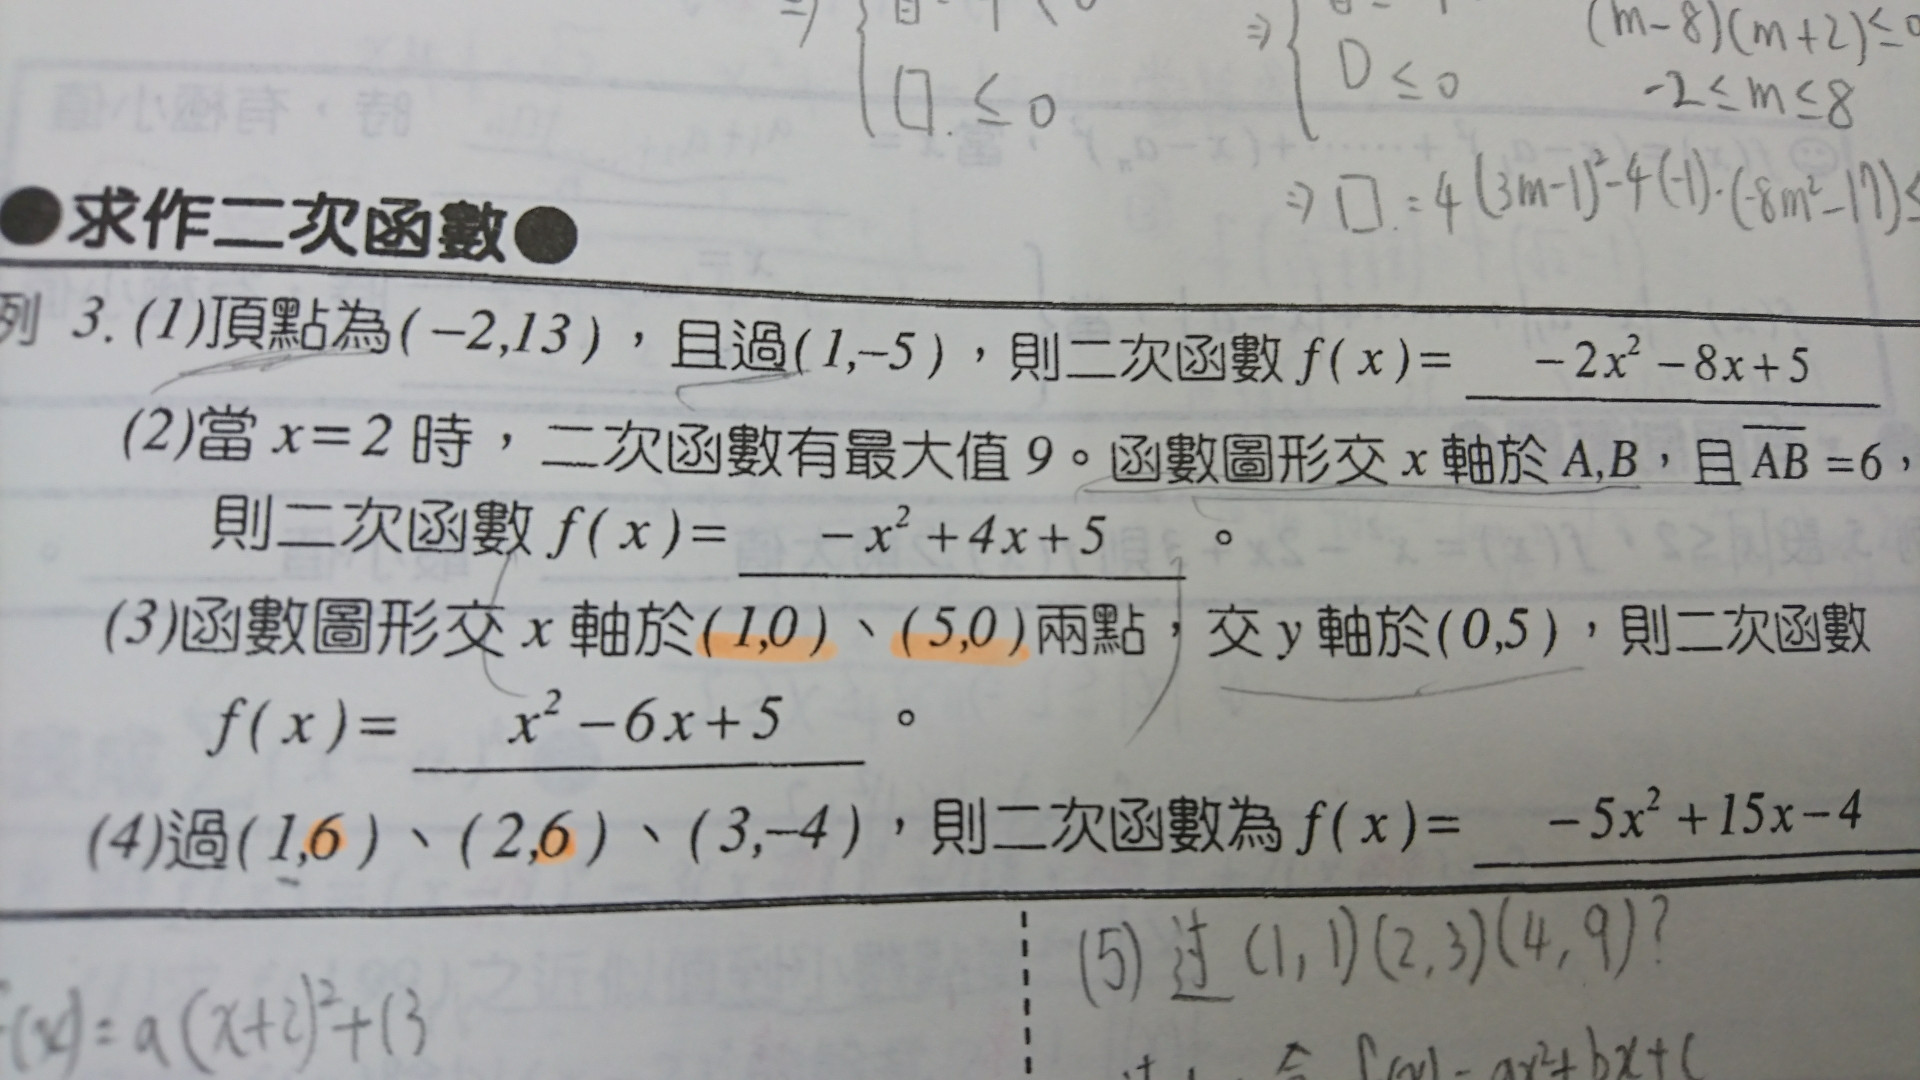 ⇒ ≤ 0
⇒ D ≤ 0
(m-8)(m+2)≤0
-2≤m≤8
⇒ □ = 4(3m-1)²-4(-1)·(-8m²-17)≤
●求作二次函數●
例 3. (1)頂點為(-2,13),且過(1,-5),則二次函數 f(x)= -2x²-8x+5
(2)當 x=2 時,二次函數有最大值 9。函數圖形交 x 軸於 A,B,且 AB̅ =6,
則二次函數 f(x)= -x²+4x+5 。
(3)函數圖形交 x 軸於(1,0)、(5,0)兩點,交 y 軸於(0,5),則二次函數
f(x)= x²-6x+5 。
(4)過(1,6)、(2,6)、(3,-4),則二次函數為 f(x)= -5x²+15x-4
(5) 过 (1,1)(2,3)(4,9)?
f(x)= a(x+2)²+13
令 f(x)=ax²+bx+c